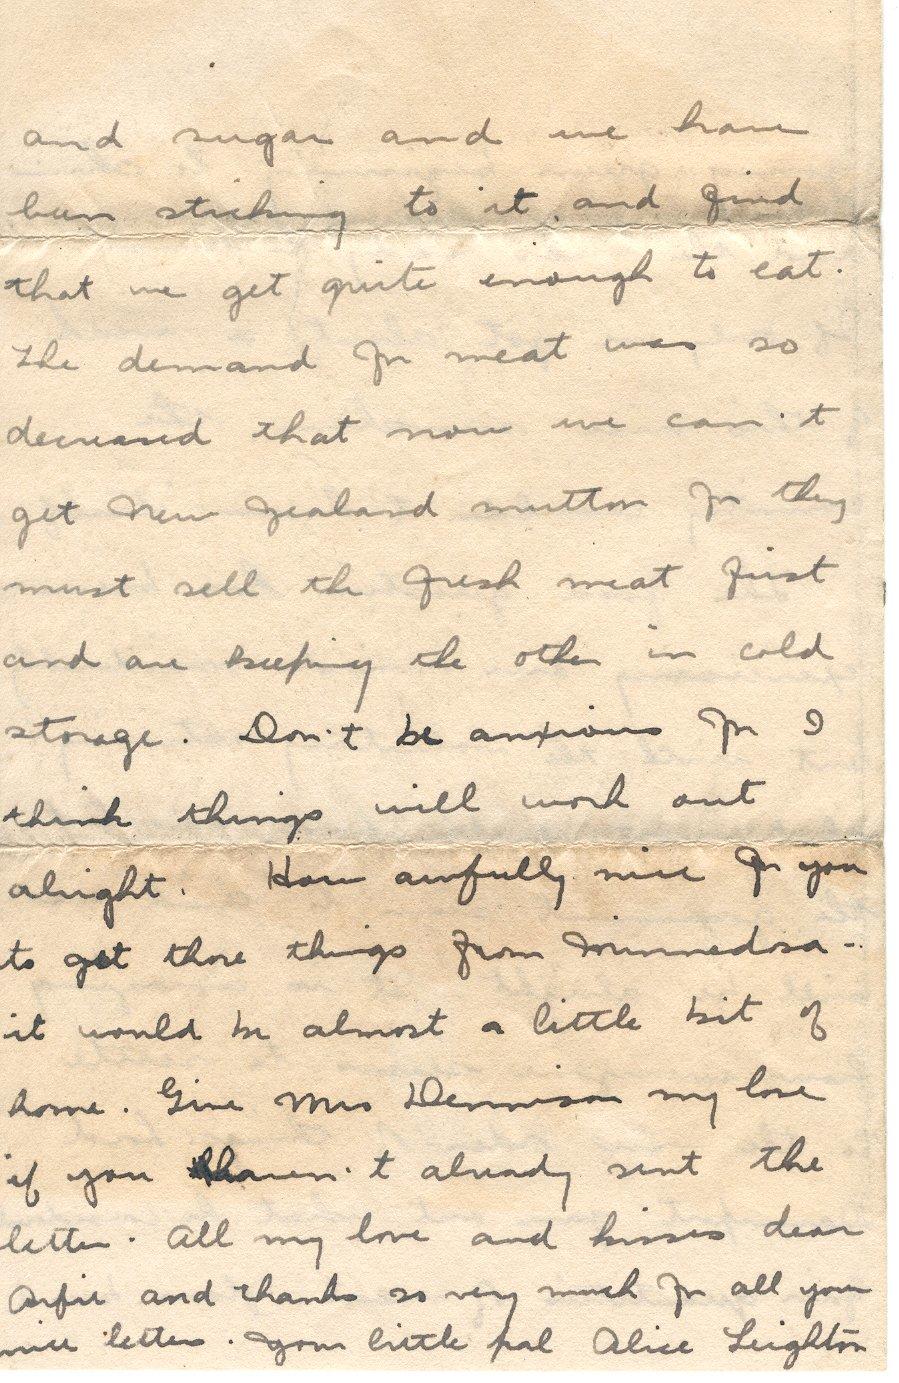 and sugar and we have
been sticking to it, and find
that we get quite enough to eat.
The demand for meat was so
decreased that now we can't
get New Zealand mutton for they
must sell the fresh meat first
and are keeping the other in cold
storage. Don't be anxious for I
think things will work out
alright. How awfully nice for you
to get those things from Minnedosa -
it would be almost a little bit of
home. Give Mrs Dennison my love
if you haven't already sent the
letter. All my love and kisses dear
and thanks so very much for all your
nice letters. Your little pal Alice Leighton